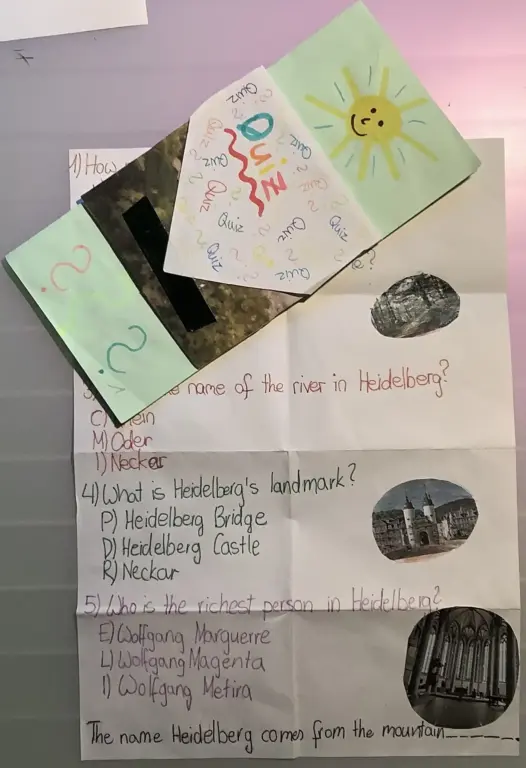 Quiz
Quiz
Quiz
Quiz
Quiz
Quiz
Quiz
Quiz
Quiz
Quiz
Quiz
Quiz
1) How
name of the river in Heidelberg?
M) Oder
I) Neckar
4) What is Heidelberg's landmark?
P) Heidelberg Bridge
D) Heidelberg Castle
R) Neckar
5) Who is the richest person in Heidelberg?
E) Wolfgang Marguerre
L) Wolfgang Magenta
I) Wolfgang Metira
The name Heidelberg comes from the mountain_____.